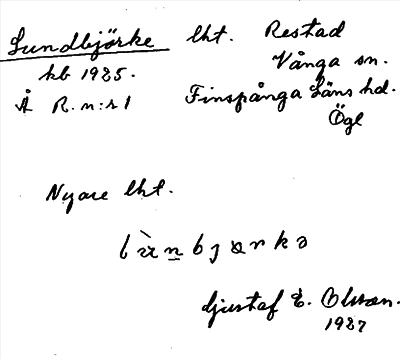 Lundbjörke lht. Restad
kb 1925. Vånga sn.
Å R.n:r 1 Finspånga Läns hd.
Ögl
Nyare lht.
Gustaf E. Olsson.
1927